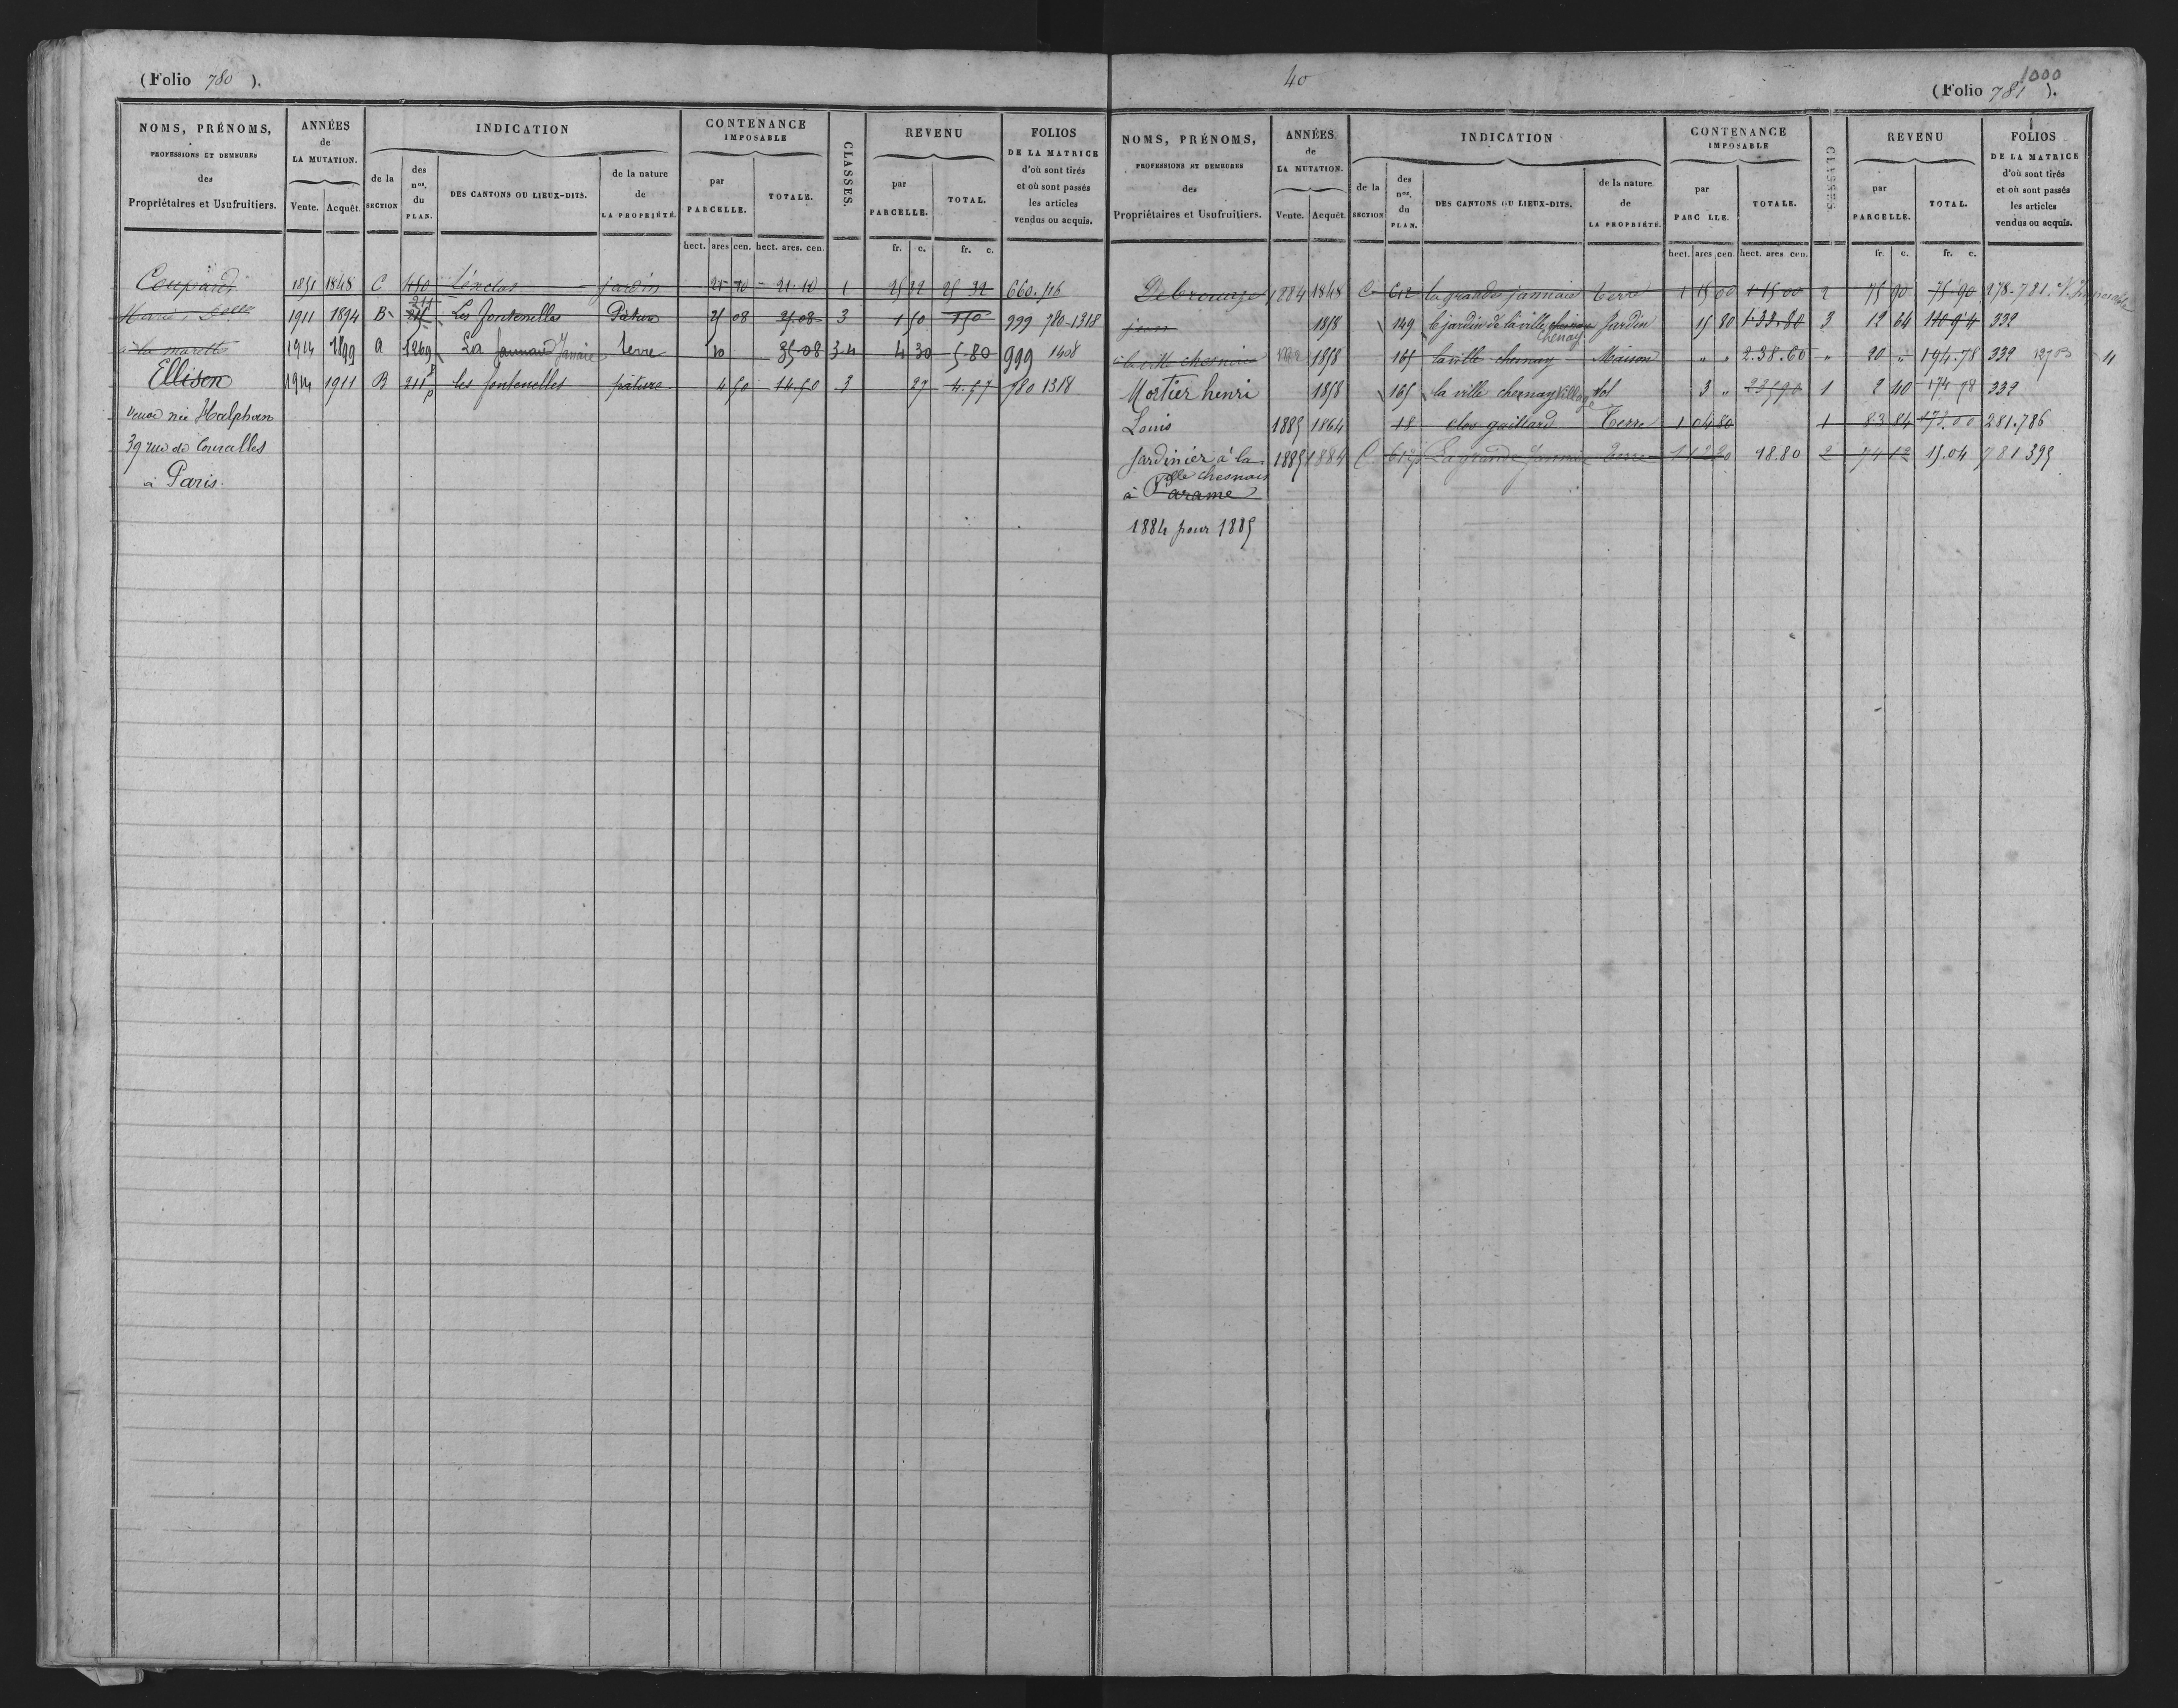 (Folio 780 ).
NOMS, PRÉNOMS,
PROFESSIONS ET DEMEURES
des
Propriétaires et Usufruitiers.
ANNÉES
de
LA MUTATION.
Vente. Acquêt.
INDICATION
de la
SECTION
des
nos.
du
PLAN.
DES CANTONS OU LIEUX-DITS.
de la nature
de
LA PROPRIÉTÉ.
CONTENANCE
IMPOSABLE
par
PARCELLE.
TOTALE.
hect. ares cen. hect. ares. cen.
CLASSES.
REVENU
par
PARCELLE.
TOTAL.
fr. c. fr. c.
FOLIOS
DE LA MATRICE
d'où sont tirés
et où sont passés
les articles
vendus ou acquis.
Coupard 1851 1848 C 450 L'énclos jardin 21 10 21.10 1 25 32 25 32 660.516
Marie 1911 1894 B 211 Les fontenelles Pâture 25 08 25.08 3 1 50 1 50 999 780-1318
à la marette 1914 1899 A 1269 La Jannaie terre 10 35 08 3-4 4 30 5.80 999 1408
Ellisen 1914 1911 B 211 p les fontenelles pâture 4 50 14.50 3 27 4.57 780 1318
veuve née Halphen
39 rue de Courcelles
à Paris.
40
1000
(Folio 781 ).
NOMS, PRÉNOMS,
PROFESSIONS ET DEMEURES
des
Propriétaires et Usufruitiers.
ANNÉES
de
LA MUTATION.
Vente. Acquêt.
INDICATION
de la
SECTION
des
nos.
du
PLAN.
DES CANTONS OU LIEUX-DITS.
de la nature
de
LA PROPRIÉTÉ.
CONTENANCE
IMPOSABLE
par
PARC LLE.
TOTALE.
hect. ares cen. hect. ares cen.
CLASSES
REVENU
par
PARCELLE.
TOTAL.
fr. c. fr. c.
FOLIOS
DE LA MATRICE
d'où sont tirés
et où sont passés
les articles
vendus ou acquis.
1884 1848 C 612 la grande jannaie terre 1 15 00 1 15 00 2 75 90 75 90 278-781
jean 1858 149 le jardin de la ville chenay Jardin 15 80 3 12 64 332
à la ville chesnaie 1858 165 la ville chesnay Maison " " 2.38.60 " 20 " 194.78 332
Mortier henri 1858 165 la ville chesnay village sol 3 " 1 2 40 174 78 332
Louis 1885 1864 18 clos gaillard Terre 1 04 80 1 83 84 281.786
Jardinier à la 1885 1884 C 612 p La grande Jannaie Terre 1 12 30 18.80 2 74 12 15.04 781 395
ville chesnais
à Paramé
1884 pour 1885